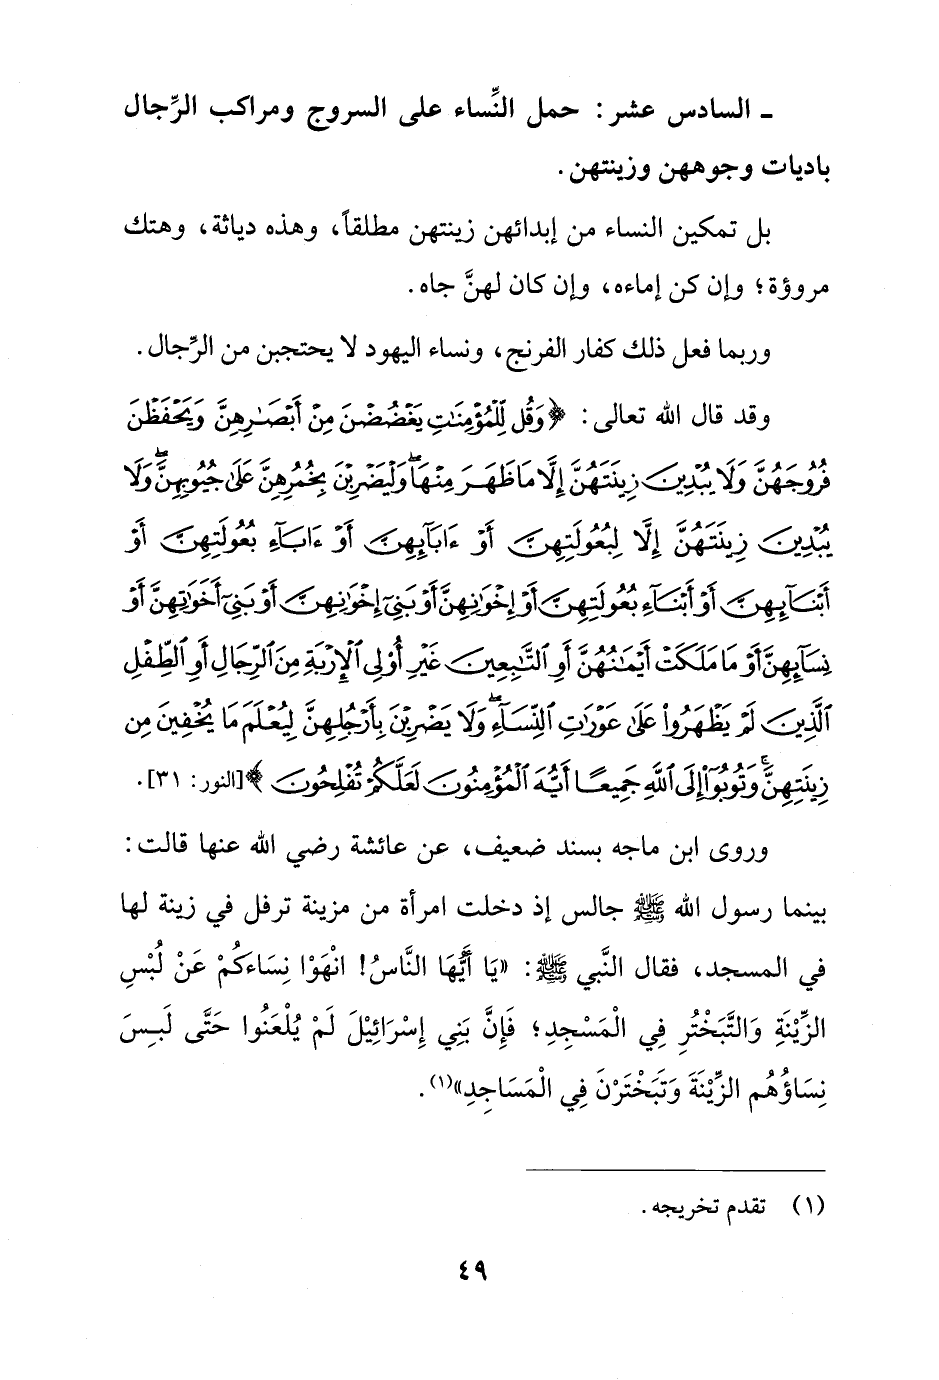 ـ السادس عشر : حمل النِّساء على السروج ومراكب الرِّجال
باديات وجوههن وزينتهن .
بل تمكين النساء من إبدائهن زينتهن مطلقاً، وهذه دياثة، وهتك
مروؤة؛ وإن كن إماءه، وإن كان لهنَّ جاه.
وربما فعل ذلك كفار الفرنج، ونساء اليهود لا يحتجبن من الرِّجال.
وقد قال الله تعالى: ﴿وَقُل لِّلْمُؤْمِنَٰتِ يَغْضُضْنَ مِنْ أَبْصَٰرِهِنَّ وَيَحْفَظْنَ
فُرُوجَهُنَّ وَلَا يُبْدِينَ زِينَتَهُنَّ إِلَّا مَا ظَهَرَ مِنْهَا ۖ وَلْيَضْرِبْنَ بِخُمُرِهِنَّ عَلَىٰ جُيُوبِهِنَّ ۖ وَلَا
يُبْدِينَ زِينَتَهُنَّ إِلَّا لِبُعُولَتِهِنَّ أَوْ ءَابَآئِهِنَّ أَوْ ءَابَآءِ بُعُولَتِهِنَّ أَوْ
أَبْنَآئِهِنَّ أَوْ أَبْنَآءِ بُعُولَتِهِنَّ أَوْ إِخْوَٰنِهِنَّ أَوْ بَنِىٓ إِخْوَٰنِهِنَّ أَوْ بَنِىٓ أَخَوَٰتِهِنَّ أَوْ
نِسَآئِهِنَّ أَوْ مَا مَلَكَتْ أَيْمَٰنُهُنَّ أَوِ ٱلتَّٰبِعِينَ غَيْرِ أُو۟لِى ٱلْإِرْبَةِ مِنَ ٱلرِّجَالِ أَوِ ٱلطِّفْلِ
ٱلَّذِينَ لَمْ يَظْهَرُوا۟ عَلَىٰ عَوْرَٰتِ ٱلنِّسَآءِ ۖ وَلَا يَضْرِبْنَ بِأَرْجُلِهِنَّ لِيُعْلَمَ مَا يُخْفِينَ مِن
زِينَتِهِنَّ ۚ وَتُوبُوٓا۟ إِلَى ٱللَّهِ جَمِيعًا أَيُّهَ ٱلْمُؤْمِنُونَ لَعَلَّكُمْ تُفْلِحُونَ﴾ [النور: ٣١].
وروى ابن ماجه بسند ضعيف، عن عائشة رضي الله عنها قالت:
بينما رسول الله ﷺ جالس إذ دخلت امرأة من مزينة ترفل في زينة لها
في المسجد، فقال النَّبي ﷺ: «يَا أَيُّهَا النَّاسُ! انْهَوْا نِسَاءَكُمْ عَنْ لُبْسِ
الزِّيْنَةِ وَالتَّبَخْتُرِ فِي الْمَسْجِدِ؛ فَإِنَّ بَنِي إِسْرَائِيْلَ لَمْ يُلْعَنُوا حَتَّى لَبِسَ
نِسَاؤُهُم الزِّيْنَةَ وَتَبَخْتَرْنَ فِي الْمَسَاجِدِ»(١).
(١) تقدم تخريجه.
٤٩